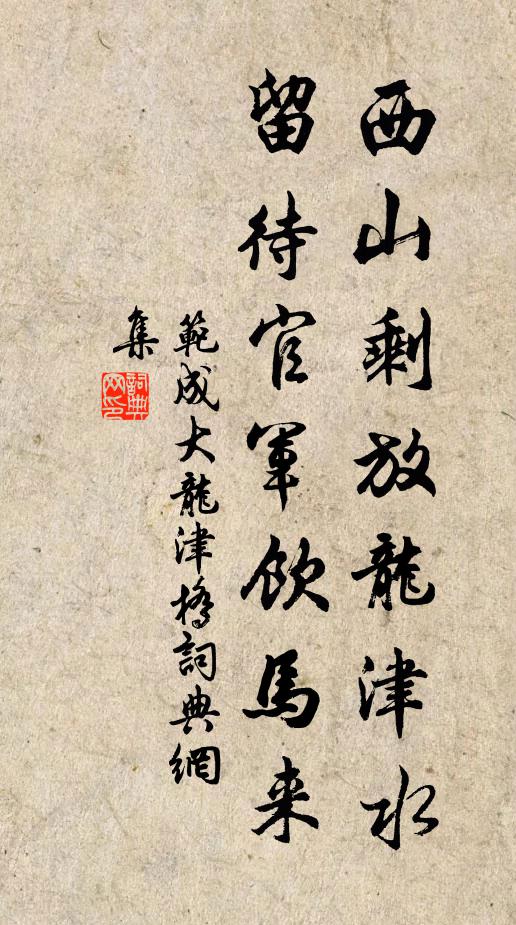 西山剩放龍津水
留待官軍飲馬来
範成大龍津橋詞典網
集
詞典
网印